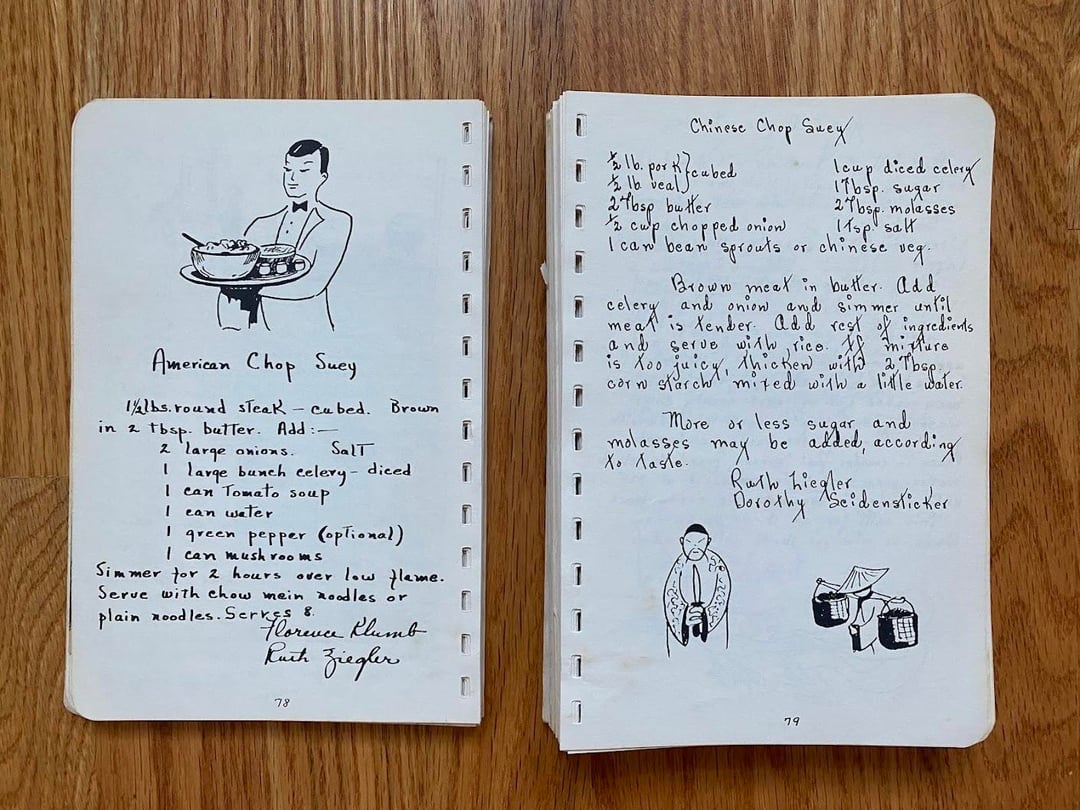 American Chop Suey
1½ lbs. round steak – cubed. Brown
in 2 tbsp. butter. Add:—
2 large onions. Salt
1 large bunch celery – diced
1 can Tomato soup
1 can water
1 green pepper (optional)
1 can mushrooms
Simmer for 2 hours over low flame.
Serve with chow mein noodles or
plain noodles. Serves 8.
Florence Klumb
Ruth Ziegler
78
Chinese Chop Suey
½ lb. pork } cubed 1 cup diced celery
½ lb veal } 1 Tbsp. sugar
2 Tbsp butter 2 Tbsp. molasses
½ cup chopped onion 1 Tsp. salt
1 can bean sprouts or chinese veg.
Brown meat in butter. Add
celery and onion and simmer until
meat is tender. Add rest of ingredients
and serve with rice. If mixture
is too juicy, thicken with 2 Tbsp.
corn starch mixed with a little water.
More or less sugar and
molasses may be added, according
to taste.
Ruth Ziegler
Dorothy Seidensticker
79